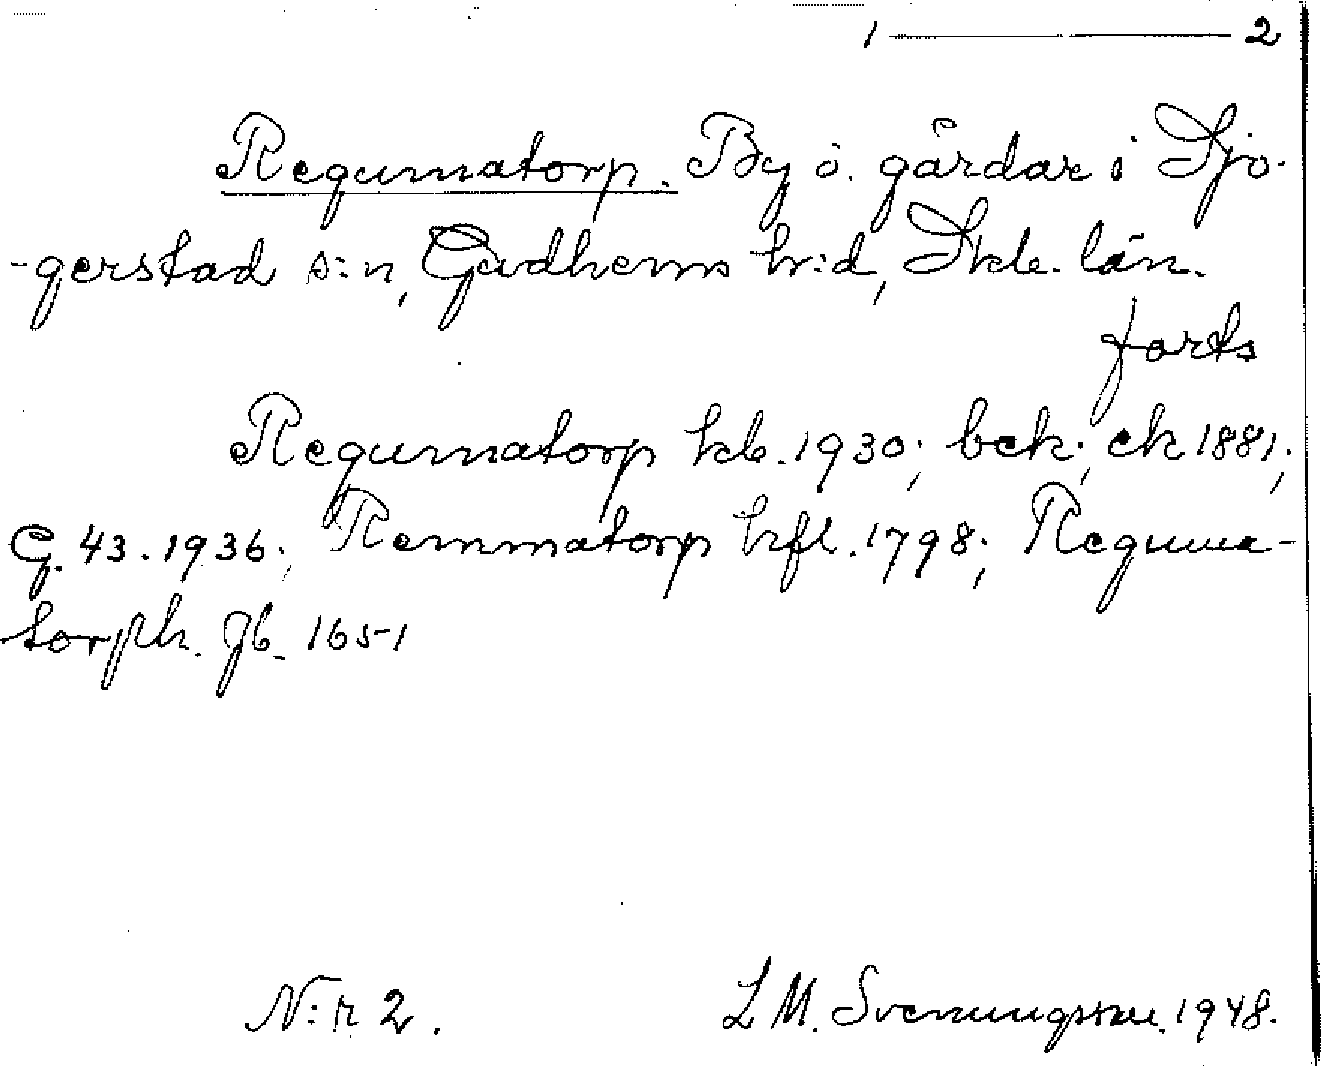 1 — 2
Regumatorp. By o. gårdar i Sjo-
-gerstad s:n, Gudhems hr:d, Skb. län.
forts
Regumatorp kb. 1930; bek; ek 1881;
G. 43. 1936; Remmatorp hfl. 1798; Reguma-
torph. Jb. 1651
N:r 2. L M. Svenungsson. 1948.